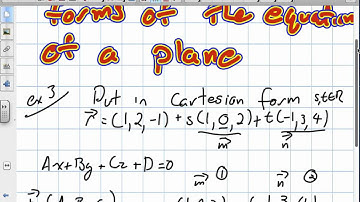 forms of the equation
of a plane
ex 3 Put in Cartesian form s,t∈R
r⃗ = (1, 2, -1) + s(1, 0, 2) + t(-1, 3, 4)
m⃗ n⃗
Ax + By + Cz + D = 0
m⃗ ① n⃗ ②